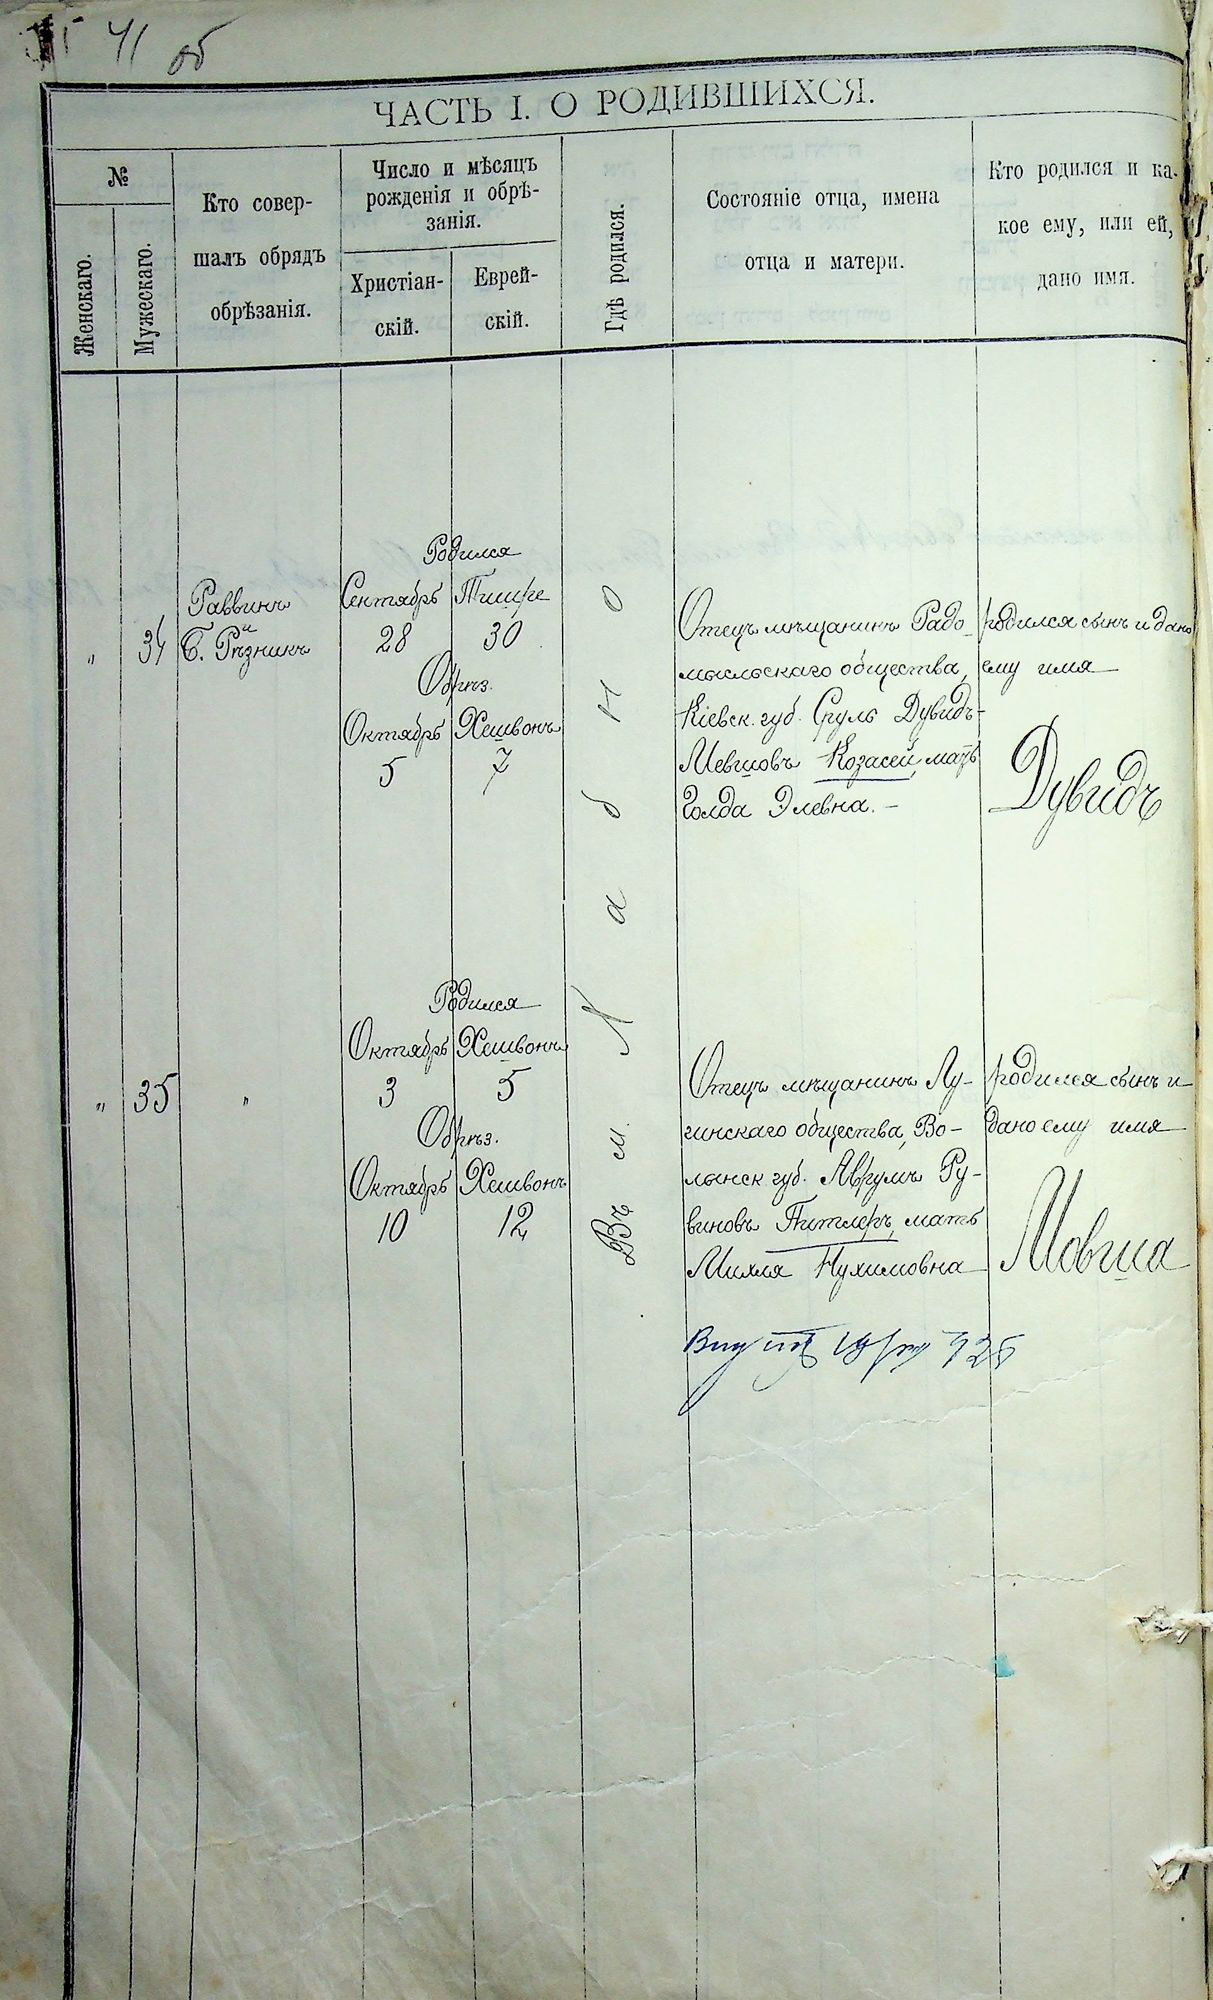 41 об
ЧАСТЬ I. О РОДИВШИХСЯ.
№
Женскаго.
Мужескаго.
Кто совер-
шалъ обрядъ
обрѣзанія.
Число и мѣсяцъ
рожденія и обрѣ-
занія.
Христіан-
скій.
Еврей-
скій.
Гдѣ родился.
Состояніе отца, имена
отца и матери.
Кто родился и ка-
кое ему, или ей,
дано имя.
"
34
Раввинъ
и
Б. Рѣзникъ
Родился
Сентябрь Тишре
28 30
Обрѣз.
Октябрь Хешвонъ
5 7
Въ м. Лабно
Отецъ мѣщанинъ Радо-
мысльскаго общества,
Кіевск. губ. Сруль Дувидъ-
Мевшовъ Козасей, мать
Голда Элевна. —
родился сынъ и дано
ему имя
Дувидъ
"
35
"
Родился
Октябрь Хешвонъ
3 5
Обрѣз.
Октябрь Хешвонъ
10 12
Отецъ мѣщанинъ Лу-
гинскаго общества, Во-
лынск. губ. Аврумъ Ру-
виновъ Питлеръ, мать
Михля Нухимовна
родился сынъ и
дано ему имя
Мовша